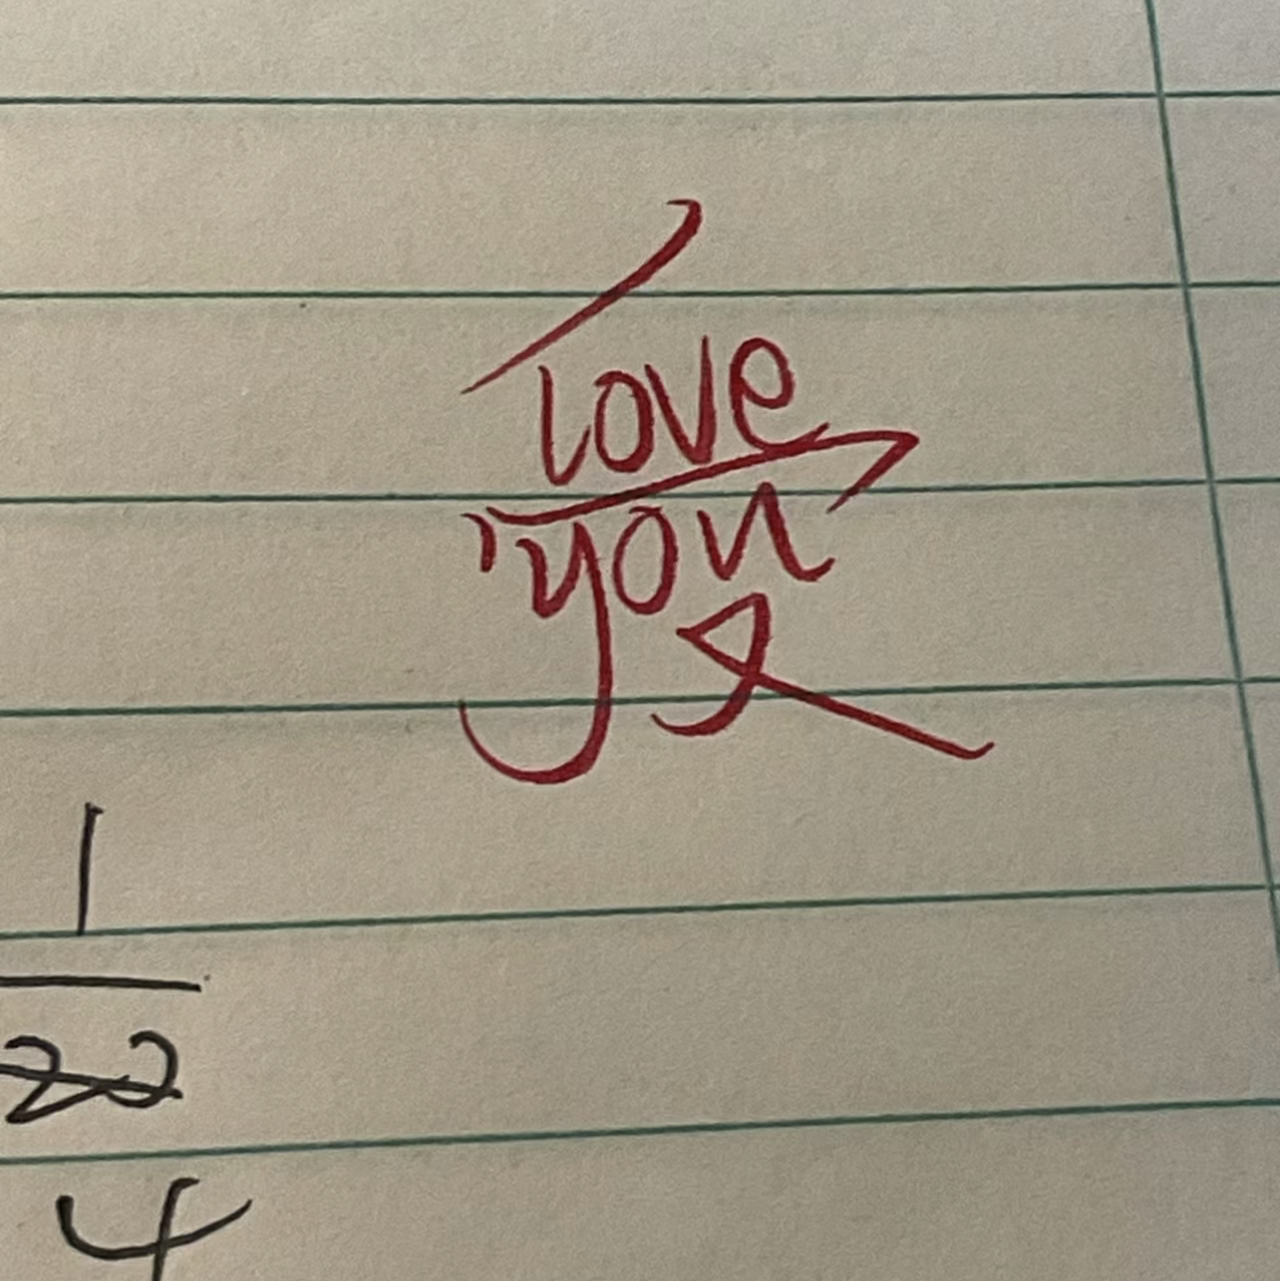 love
you
1
22
4